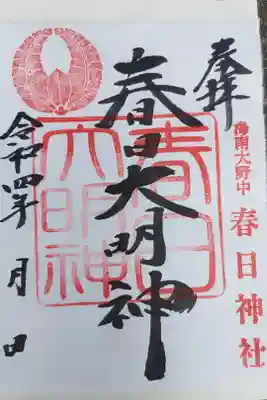 奉拝
海南大野中
春日神社
春日大明神
春日
大明神
令和四年 月 日